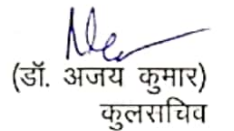 (डॉ. अजय कुमार)
कुलसचिव